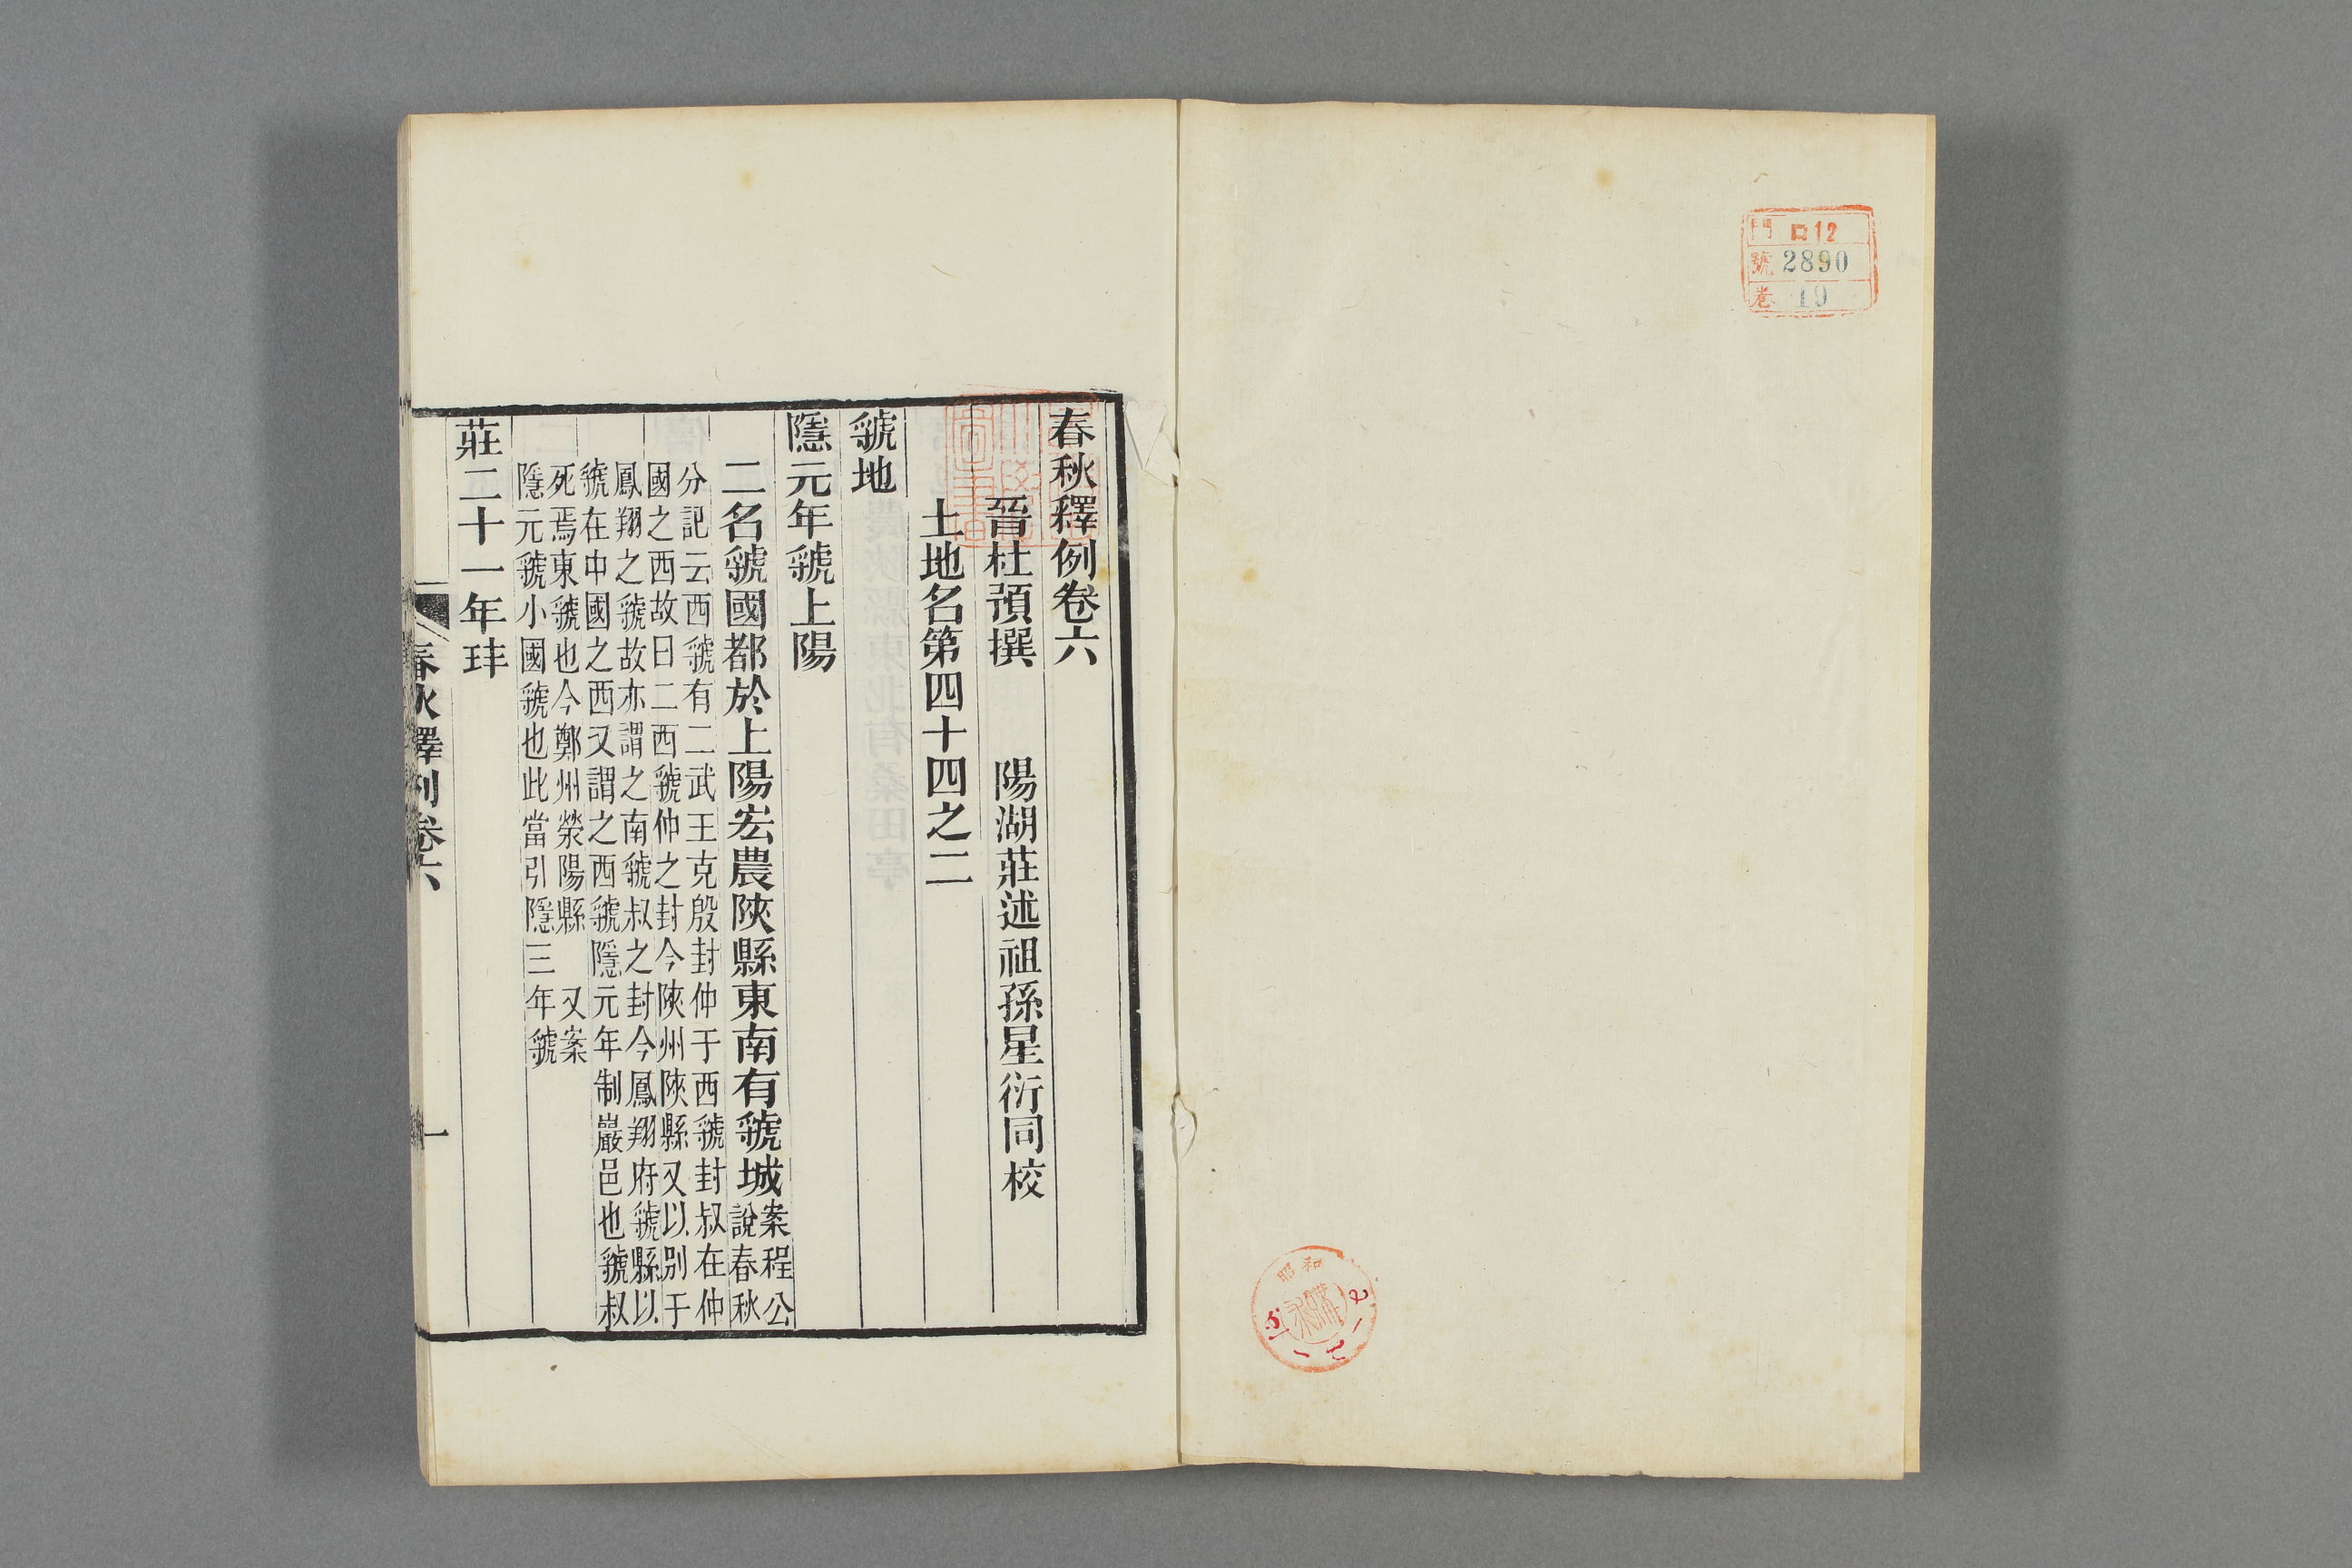 門 ロ12
號 2890
卷 19
昭和
春秋釋例卷六
晉杜預撰　陽湖莊述祖孫星衍同校
土地名第四十四之二
虢地
隱元年虢上陽
二名虢國都於上陽宏農陝縣東南有虢城案程公
說春秋
分記云西虢有二武王克殷封仲于西虢封叔在仲
國之西故曰二西虢仲之封今陝州陝縣又以別于
鳳翔之虢故亦謂之南虢叔之封今鳳翔府虢縣以
虢在中國之西又謂之西虢隱元年制巖邑也虢叔
死焉東虢也今鄭州滎陽縣　又案
隱元虢小國虢也此當引隱三年虢
莊二十一年玤
春秋釋例卷六　一